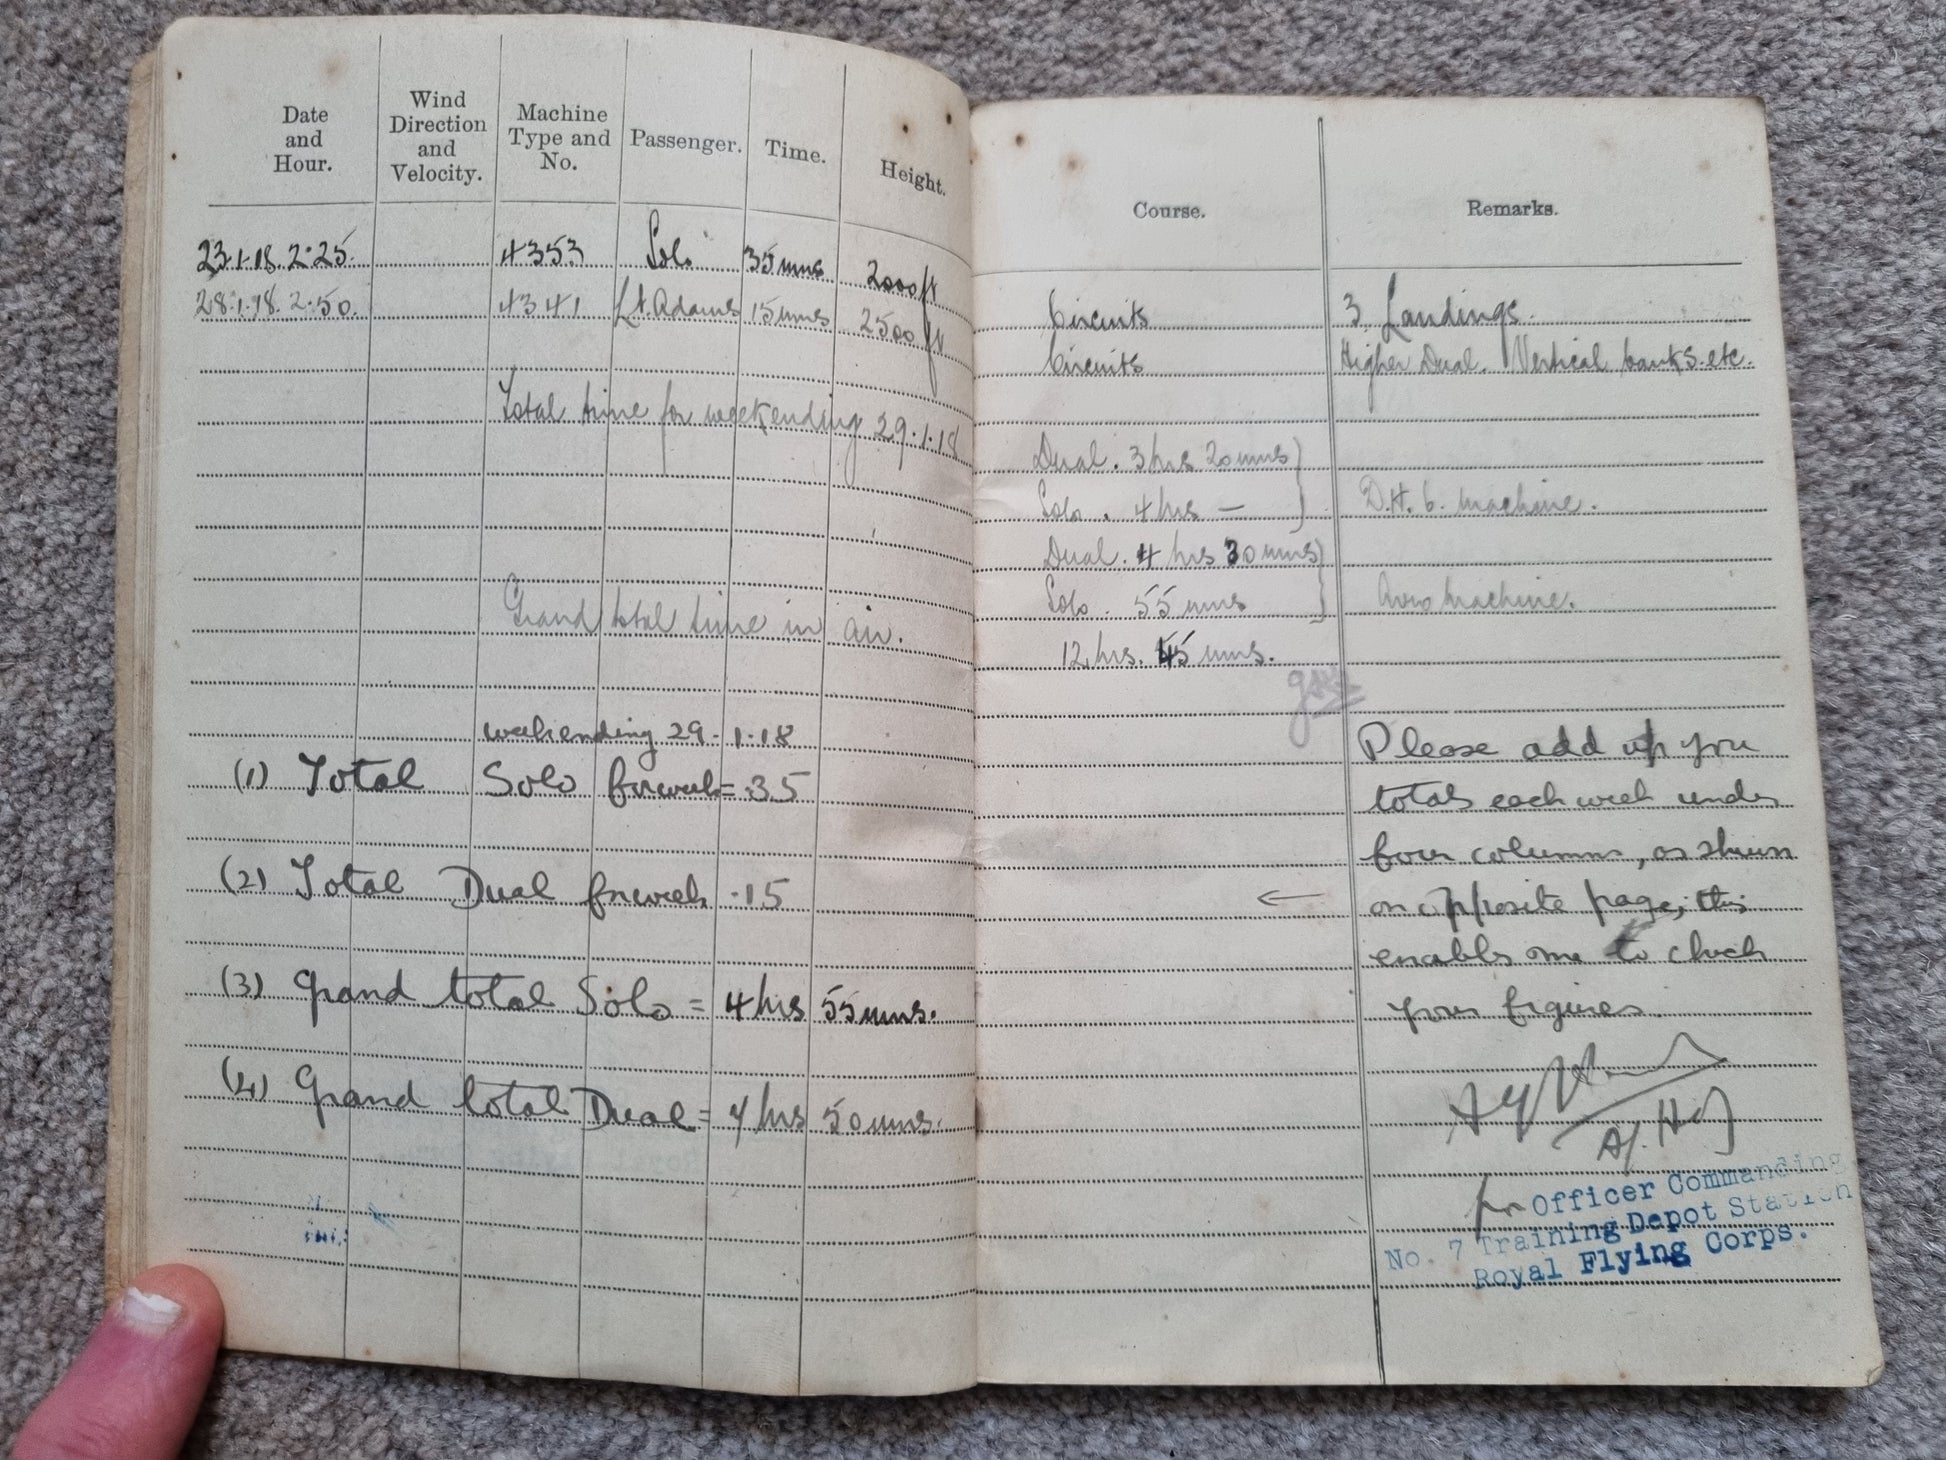 Date and Hour. Wind Direction and Velocity. Machine Type and No. Passenger. Time. Height.
23.1.18. 2.25. 4353 Solo 35 mns 2000 ft
28.1.18. 2.50. 4341 Lt. Adams 15 mns 2500 ft
Total time for weekending 29.1.18
Grand total time in air.
weekending 29.1.18
(1) Total Solo for week = .35
(2) Total Dual for week .15
(3) Grand total Solo = 4 hrs 55 mns.
(4) Grand total Dual = 7 hrs 50 mns.
Course. Remarks.
Circuits 3 Landings.
Circuits Higher Dual. Vertical banks. etc.
Dual. 3 hrs 20 mns
Solo. 4 hrs — D.H. 6. machine.
Dual. 4 hrs 30 mns
Solo. 55 mns Avro machine.
12 hrs. 45 mns.
Please add up you
totals each week under
four columns, as shewn
← on opposite page; this
enables me to check
your figures.
for Officer Commanding
No. 7 Training Depot Station
Royal Flying Corps.